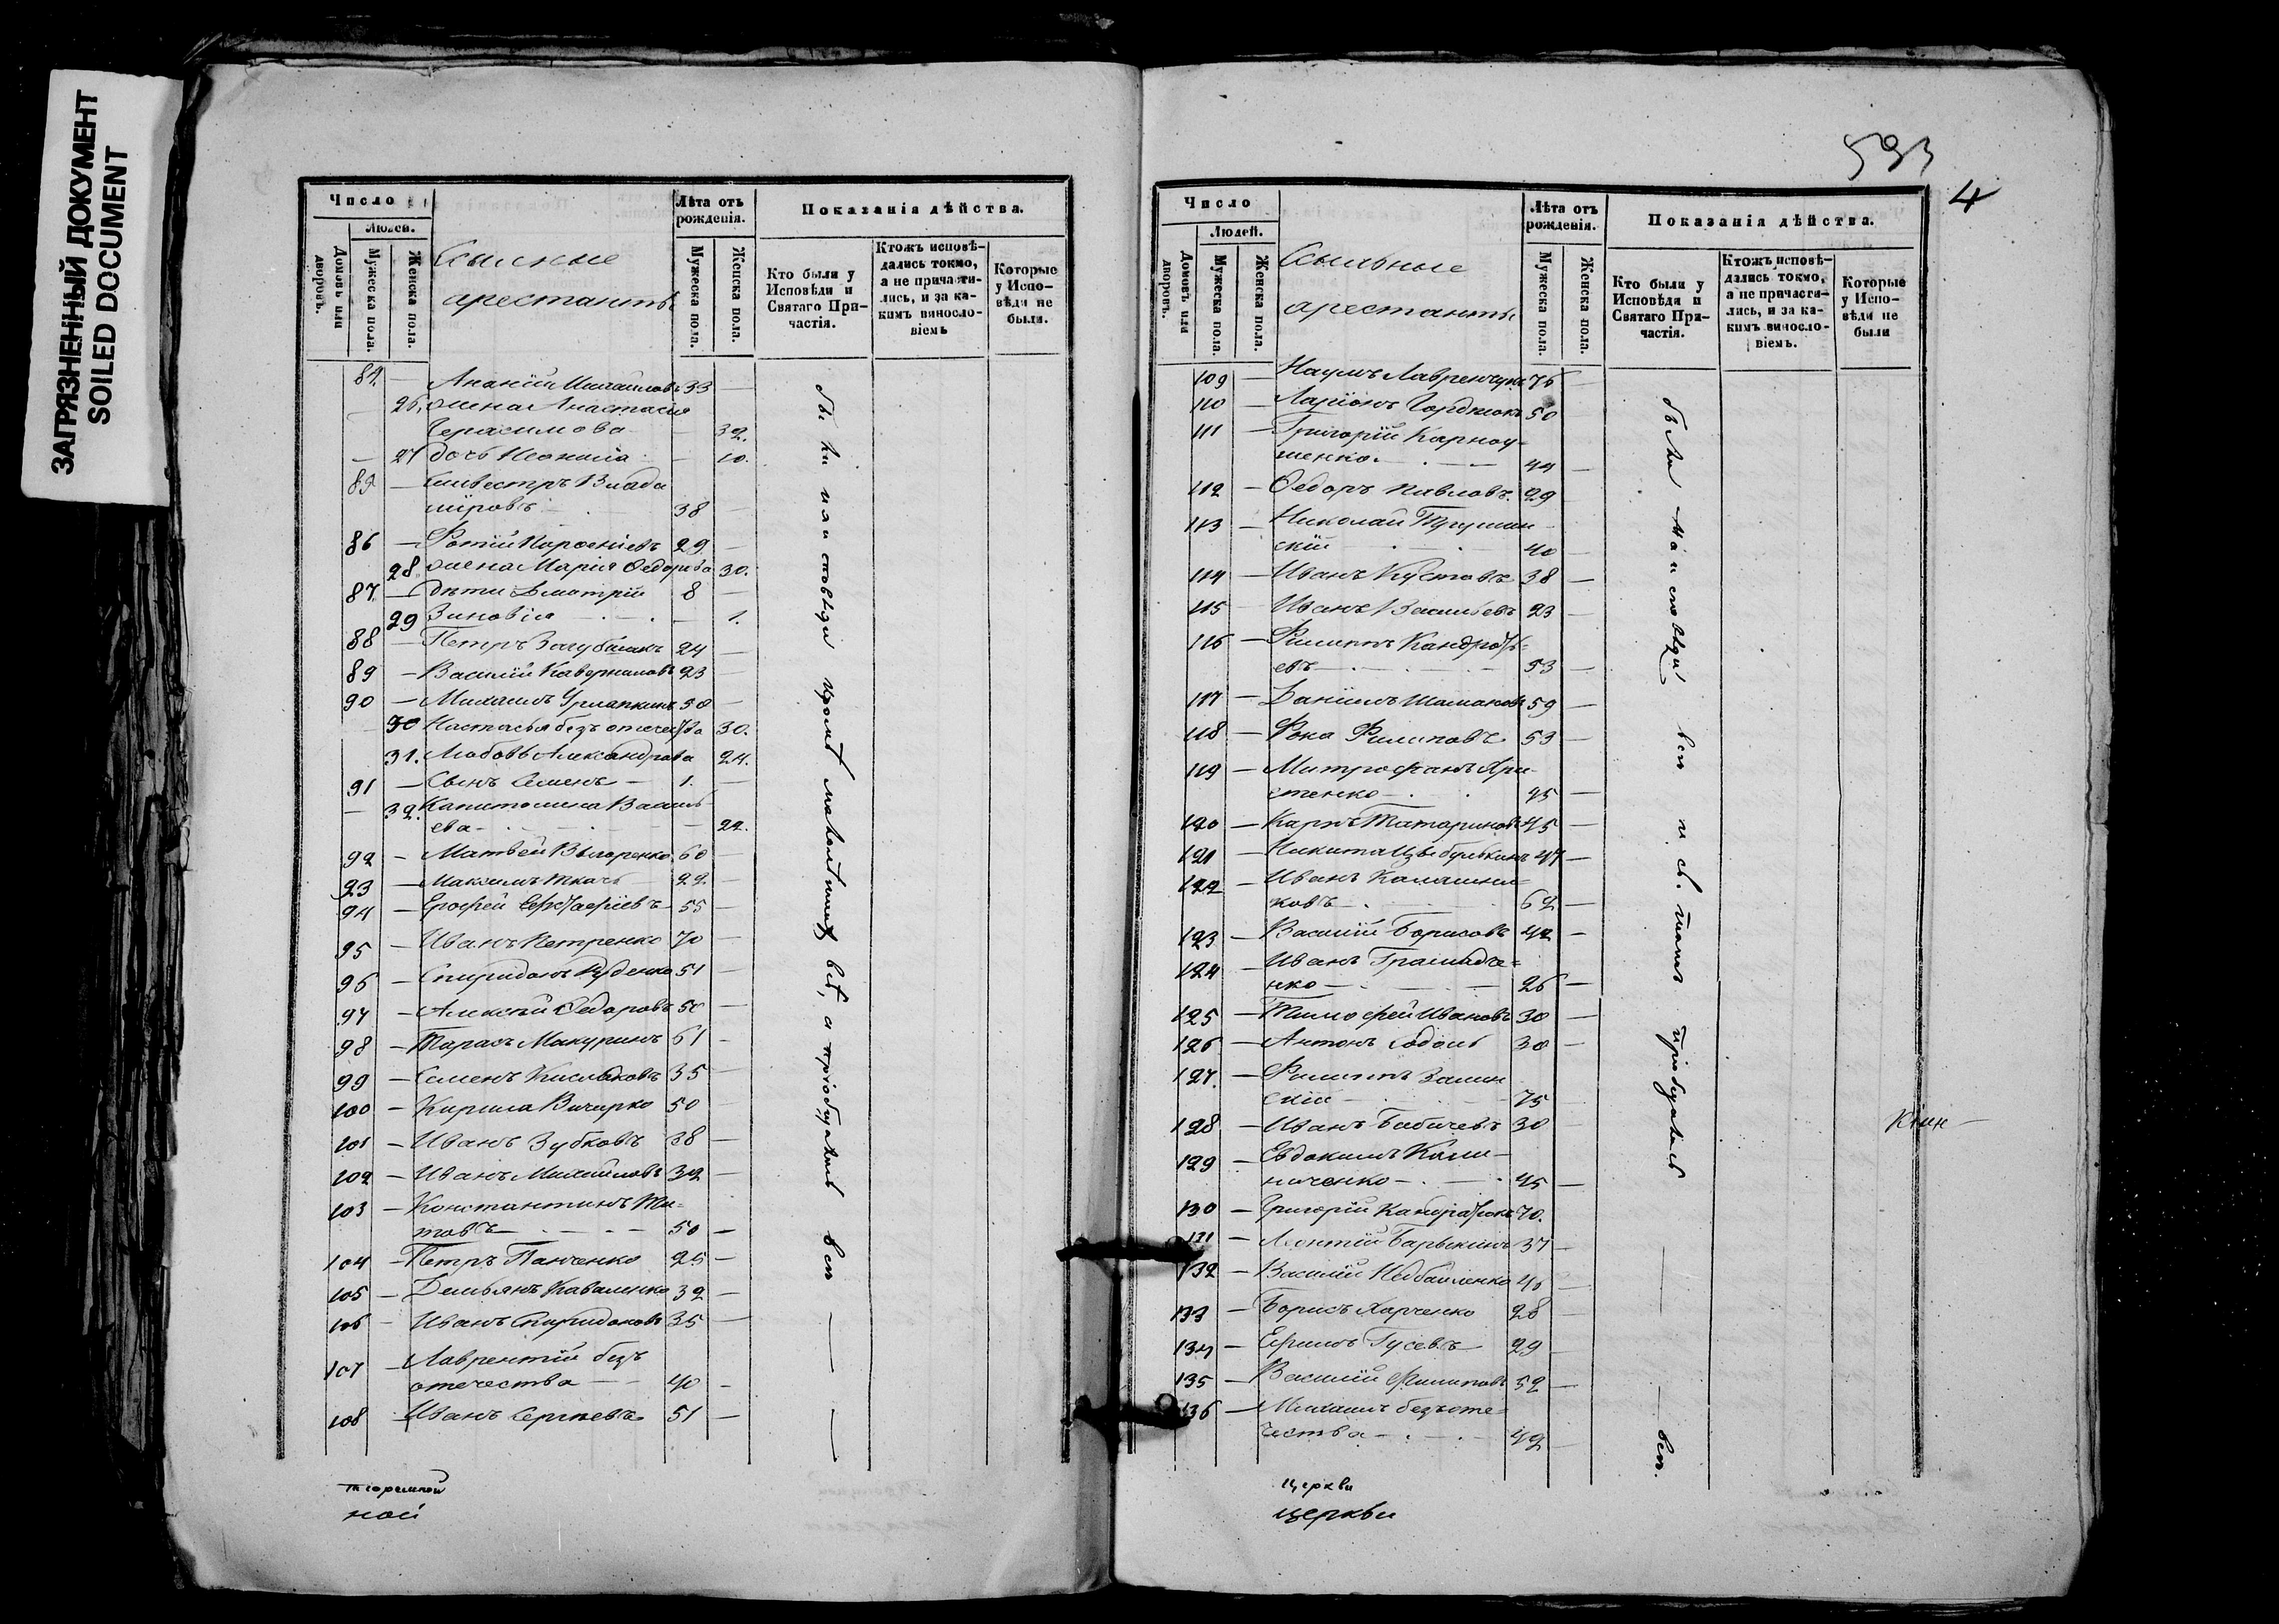 ЗАГРЯЗНЕННЫЙ ДОКУМЕНТ
SOILED DOCUMENT
Число
Людей.
Домовъ или дворовъ.
Мужеска пола.
Женска пола.
Ссыльные
арестанты
Лѣта отъ рожденія.
Мужеска пола.
Женска пола.
Показанія дѣйства.
Кто были у Исповѣди и Святаго Причастія.
Ктожъ исповѣ-
дались токмо,
а не причасти-
лись, и за ка-
кимъ винословіемъ
Которые
у Испо-
вѣди не
были.
84 — Ананій Михайловъ 33 —
26 жена Анастасія
Герасимова — 32.
— 27 дочь Неонила — 10.
85 — Силвестръ Влади
міровъ — 38 —
86 — Фотій Парѳеніевъ 29. —
28 жена Марія Ѳедорова 30.
87. — Дѣти Дмитрій 8 —
29 Зиновія — 1.
88 — Петръ 24 —
89 — Василій 23 —
90 — Михаилъ 30 —
30 Настасья безъ отечества 30.
31. Любовь Александрова 24.
91 — Сынъ Семенъ — 1. —
— 32. Капитолина Василь
ева — 22.
92 — Матвѣй 60 —
93 — Максимъ Ткачъ 22 —
94 — Ерофей 55 —
95 — Иванъ Петренко 70 —
96 — Спиридонъ Руденко 51 —
97 — Алексѣй Ѳедоровъ 50 —
98 — Тарасъ Макуринъ 61 —
99 — Семенъ Кисляковъ 35 —
100 — Кирила Вичирко 50 —
101 — Иванъ Зубковъ 38 —
102 — Иванъ Михайловъ 32 —
103 — Константинъ Ти-
товъ — 50 —
104 — Петръ Панченко 25 —
105 — Демьянъ Коваленко 32 —
106 — Иванъ Спиридоновъ 35 —
107 — Лаврентій безъ
отечества — 40 —
108 Иванъ Сергѣевъ 51 —
тюремной
ной
593
4
Число
Людей.
Домовъ или дворовъ.
Мужеска пола.
Женска пола.
Ссыльные
арестанты
Лѣта отъ рожденія.
Мужеска пола.
Женска пола.
Показанія дѣйства.
Кто были у Исповѣди и Святаго Причастія.
Ктожъ исповѣ-
дались токмо,
а не причасти-
лись, и за ка-
кимъ винословіемъ.
Которые
у Испо-
вѣди не
были
109 — Наумъ 76 —
110 — Ларіонъ Гордіюкъ 50
111 — Григорій Карноу-
шенко. — 44 —
112 — Ѳедоръ Павловъ. 29
113 — Николай
скій — 40 —
114 — Иванъ Кустовъ 38 —
115 Иванъ Васильевъ 23 —
116 — Филиппъ Кандратъ-
евъ — 53 —
117 — Даніилъ Шамановъ 59 —
118 — Фока Филиповъ 53 —
119 — Митрофанъ Хри-
стенко — 45 —
120 — Карпъ Татариновъ 45 —
121 — Никита Цыбулькинъ 47 —
122 — Иванъ Калашни-
ковъ — 62 —
123 — Василій Борисовъ 42 —
124 — Иванъ Грамадче-
нко — 26 —
125 — Тимофей Ивановъ 30 —
126 — Антонъ Соболь 30 —
127. — Филиппъ Залин
скій — 75 —
128 — Иванъ Бабичевъ 30 —
129 — Евдокимъ Кали-
ниченко — 45 —
130 — Григорій 70.
131 — Леонтій Барыкинъ 37 —
132 — Василій Недбайленко 46 —
133 — Борисъ Харченко 28 —
134 — Ефимъ Гусевъ 29 —
135 — Василій Филиповъ 52 —
136 — Михаилъ безъоте-
чества — 42 —
церкви
церкви